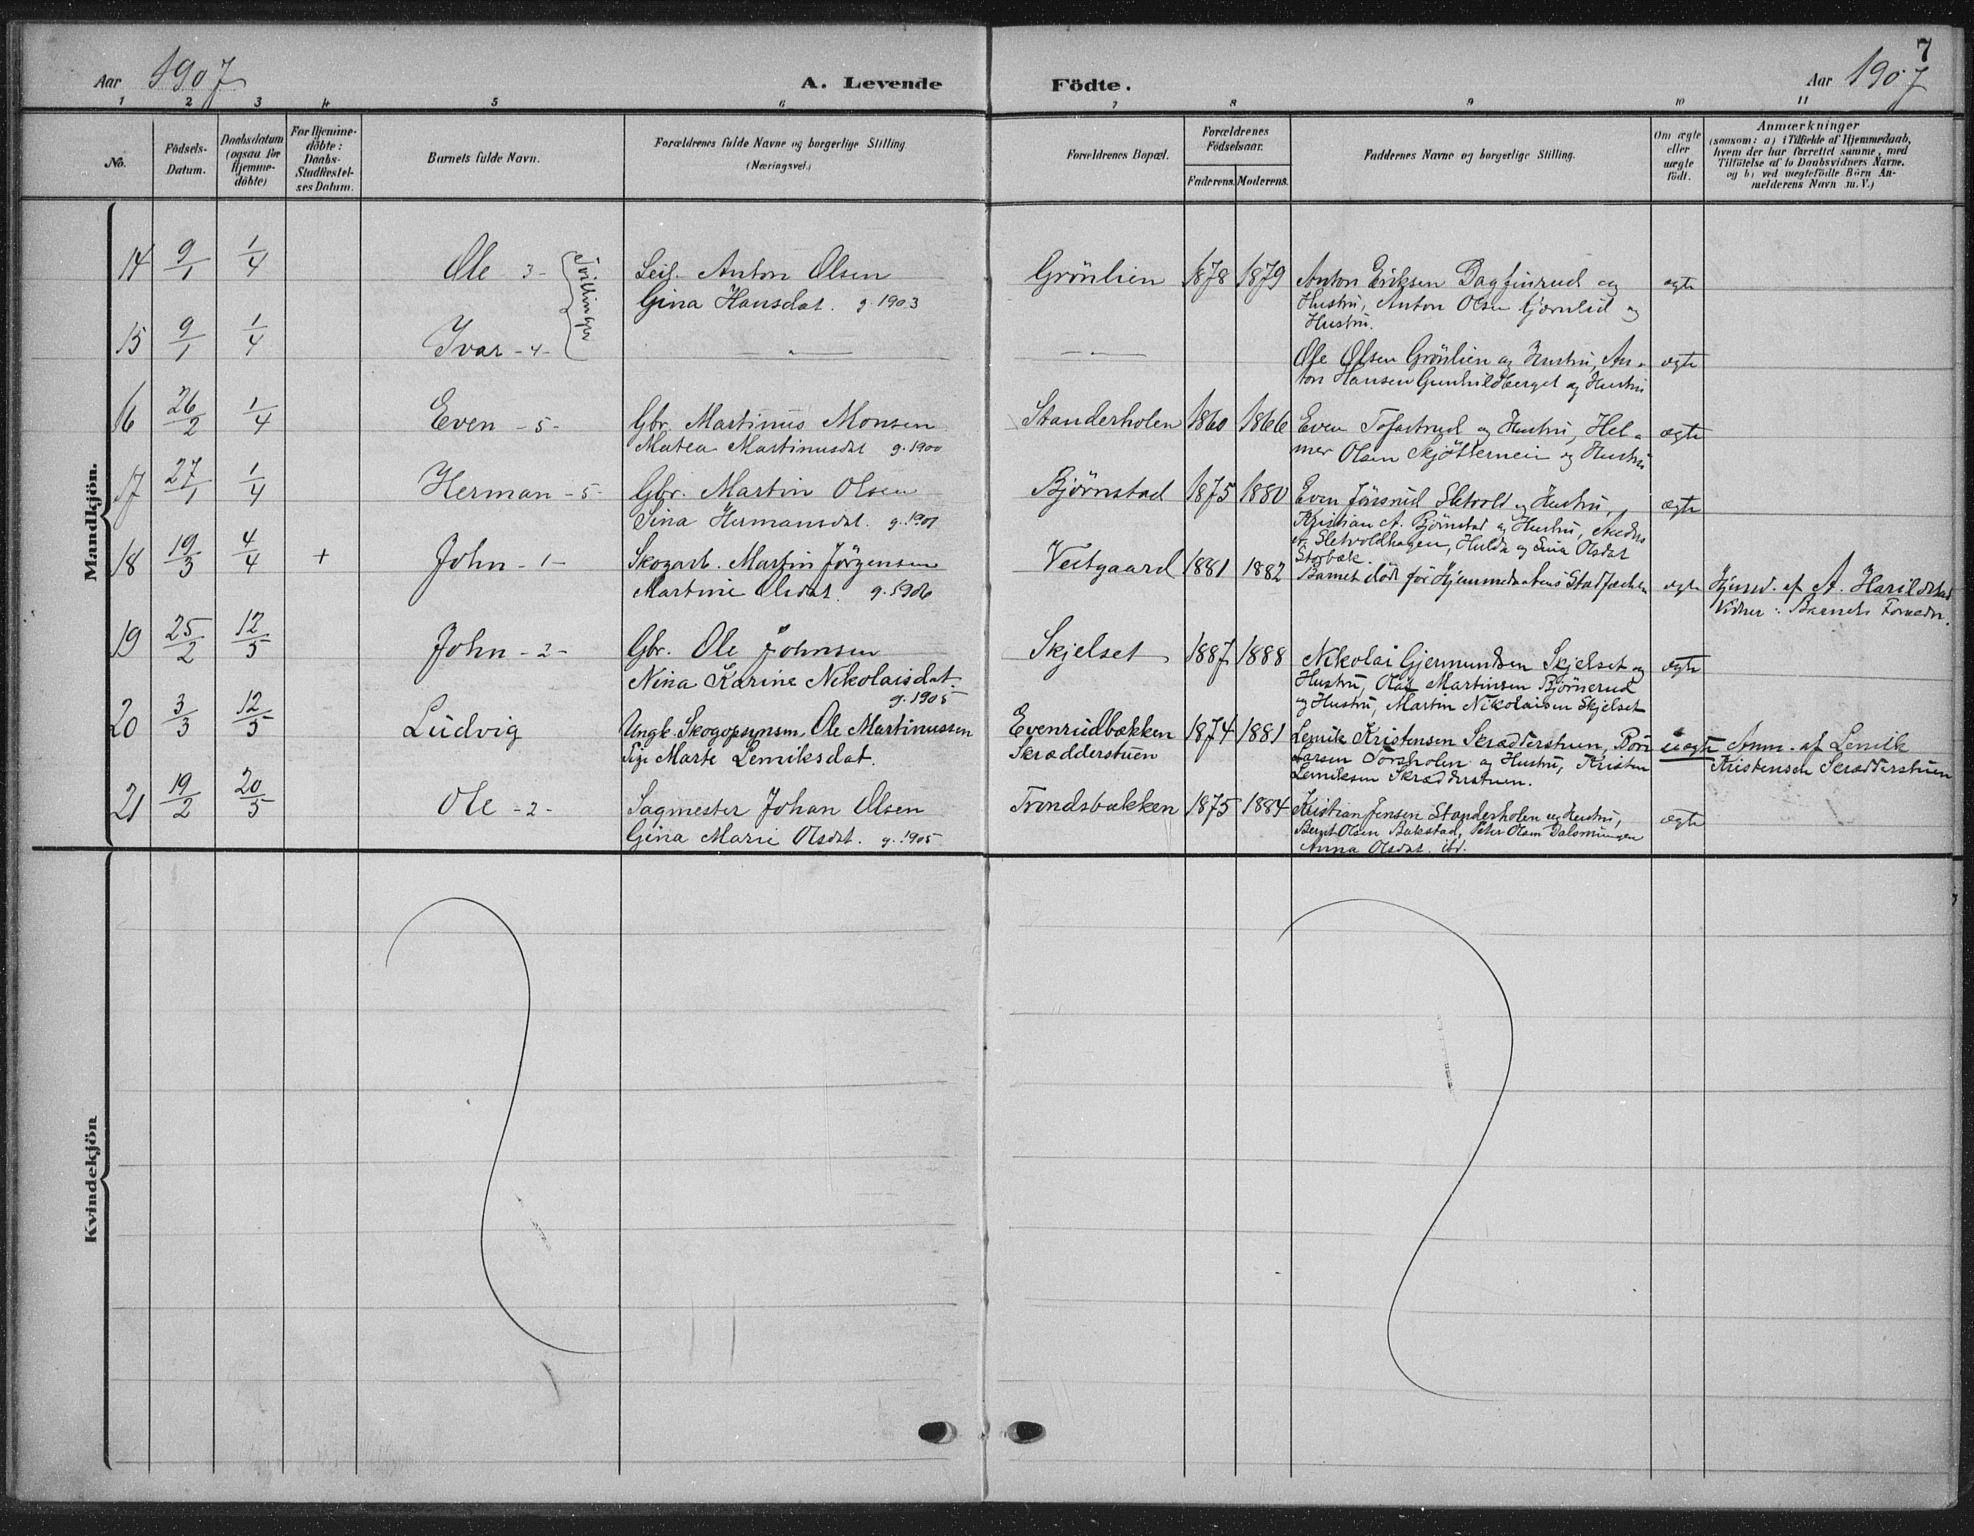 7
Aar 1907
A. Levende
Födte.
Aar 1907
1 2 3 4 5 6 7 8 9 10 11
No.
Födsels-
Datum.
Daabsdatum
(ogsaa for
Hjemme-
döbte)
For Hjemme-
döbte:
Daabs-
Stadfæstel-
ses Datum.
Barnets fulde Navn.
Forældrenes fulde Navne og borgerlige Stilling
(Næringsvei.)
Forældrenes Bopæl.
Forældrenes
Födselsaar.
Faderens. Moderens.
Faddernes Navne og borgerlige Stilling.
Om ægte
eller
uægte
födt.
Anmærkninger
(saasom: a) i Tilfælde af Hjemmedaab,
hvem der har forrettet samme, med
Tilföielse af to Daabsvidners Navne.
og b) ved uægtefödte Börn An-
melderens Navn m. V.)
Mandkjön.
14 9/1 1/4 Ole - 3 - Tvillinger
Leil. Anton Olsen
Gina Hansdat. g. 1903
Grönlien 1878 1879
Anton Eriksen Dagfinrud og
Hustru, Anton Olsen og
Hustru.
ægte
15 9/1 1/4 Ivar - 4 - — " — — " —
Ole Olsen Grönlien og Hustru, An-
ton Hansen Gunhildberget og Hustru
ægte
16 26/2 1/4 Even - 5 -
Gbr. Martinus Monsen
Matea Martinusdat g. 1900
Standerholen 1860 1866
Even Tofastrud og Hustru, Hel-
mer Olsen og Hustru
ægte
17 27/1 1/4 Herman - 5 -
Gbr. Martin Olsen
Sina Hermansdat. g. 1901
Björnstad 1875 1880
Even Sletvold og Hustru,
Kristian A. Björnstad og Hustru, Anders
Sletvoldhagen, Hulda og Sina Olsdat
Storbæk.
ægte
18 19/3 4/4 + John - 1 -
Skogarb. Martin Jörgensen
Martine Olsdat. g. 1906
Vestgaard 1881 1882
Barnet död för Hjemmedaabens Stadfæstelse
ægte
Hjemd. af A. Harildstad
Vidner: Barnets Forældre.
19 25/2 12/5 John - 2 -
Gbr. Ole Johnsen
Nina Karine Nikolaisdat.
g. 1905
Skjelset 1887 1888
Nikolai Gjermundsen Skjelset og
Hustru, Olaf Martinsen Björnerud
og Hustru, Martin Nikolaisen Skjelset
ægte
20 3/3 12/5 Ludvig
Ungk. Skogopsynsm. Ole Martinussen
Pige Marte Lemiksdat.
Evenrudbækken 1874 1881
Skrædderstuen
Lemik Kristensen Skrædderstuen,
Larsen Torsholen og Hustru, Kristen
Lemiksen Skrædderstuen.
uægte
Anm. af Lemik
Kristensen Skrædderstuen
21 19/2 20/5 Ole - 2 -
Sagmester Johan Olsen
Gina Marie Olsdat. g. 1905
Trondsbækken 1875 1884
Kristian Jensen Standerholen og Hustru,
Bernt Olsen Bakstad, Peter Olsen
Anna Olsdat. ibd.
ægte
Kvindekjön